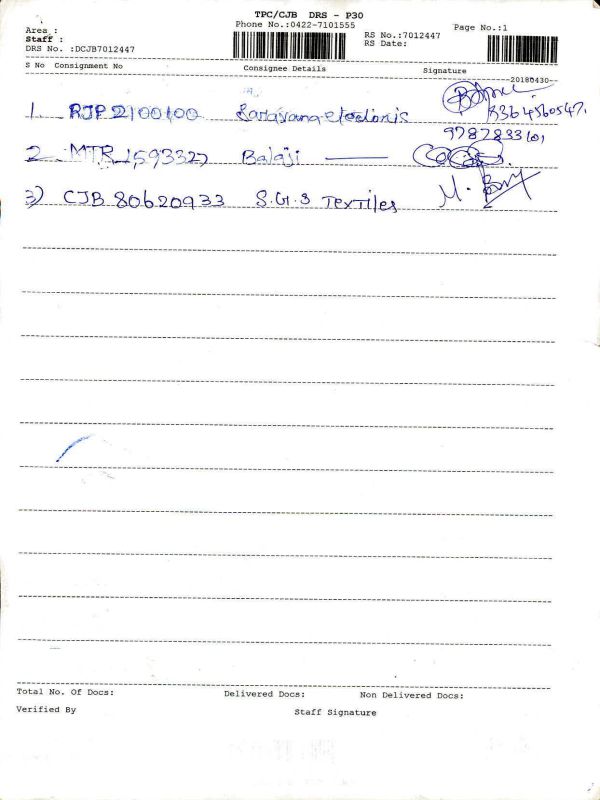 TPC/CJB DRS - P30
Phone No.:0422-7101555
Page No.:1
Area :
Staff :
RS No.:7012447
RS Date:
DRS No. :DCJB7012447
S No Consignment No Consignee Details Signature
20180430
1. RJP 2100100
9787833101
2 MTR 1593327 Balaji
3) CJB 80620933 S.G.S Textiles
Total No. Of Docs: Delivered Docs: Non Delivered Docs:
Verified By Staff Signature